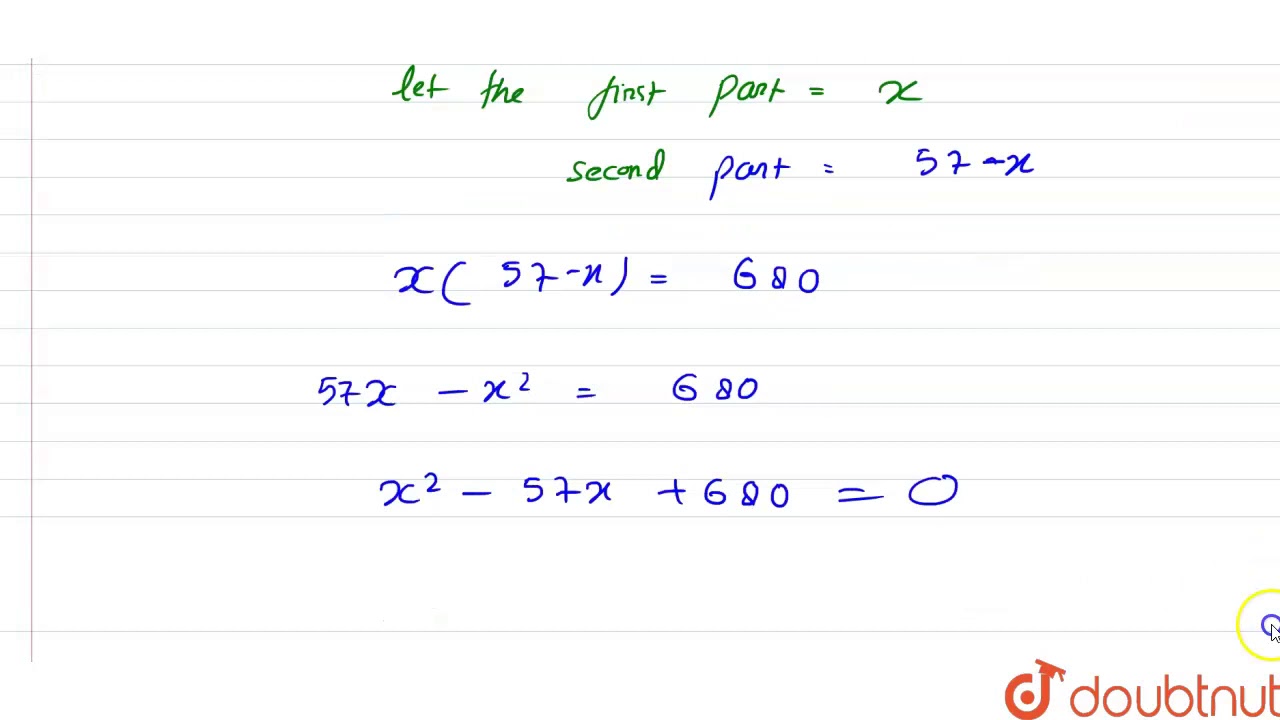 let the first part = x
second part = 57 - x
x( 57 - x) = 680
57x - x² = 680
x² - 57x + 680 = 0
doubtnut